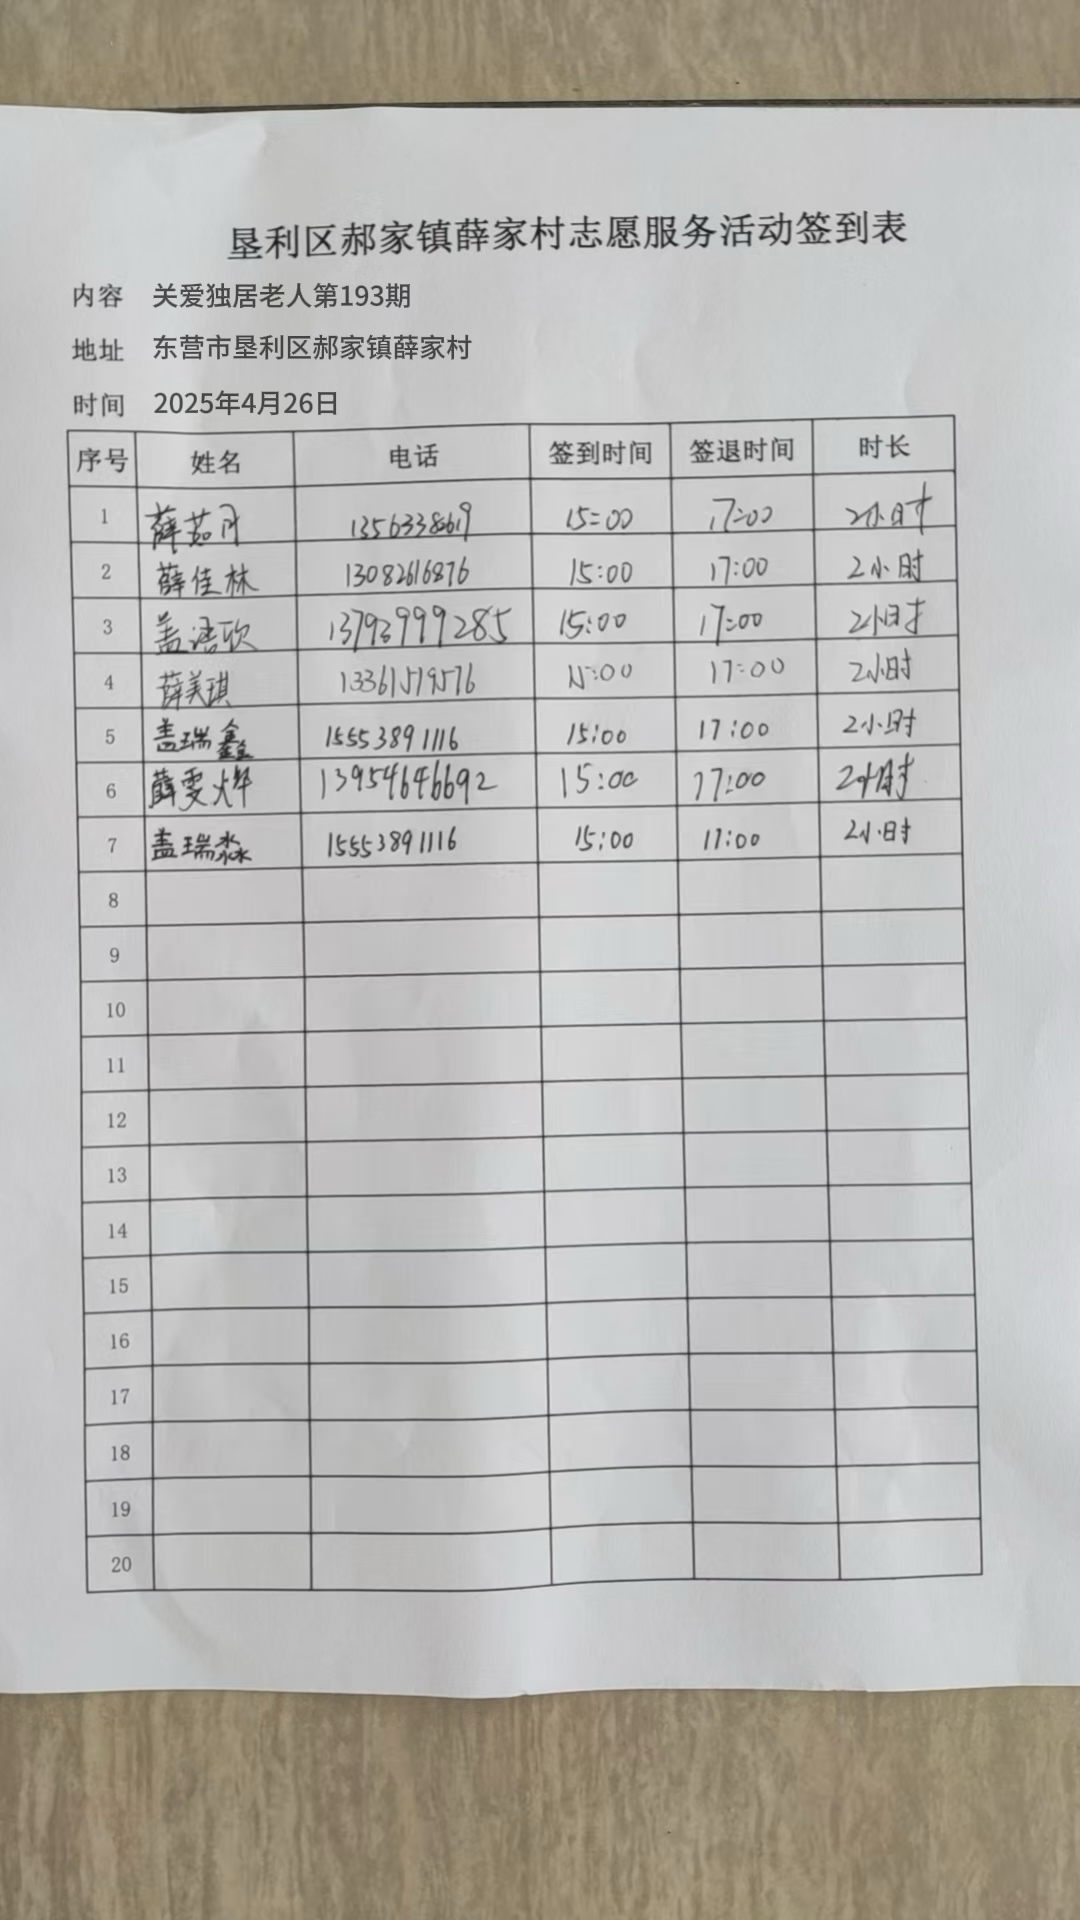 垦利区郝家镇薛家村志愿服务活动签到表
内容 关爱独居老人第193期
地址 东营市垦利区郝家镇薛家村
时间 2025年4月26日
序号 姓名 电话 签到时间 签退时间 时长
1 薛茹月 15:00 17:00 2小时
2 薛佳林 13082616876 15:00 17:00 2小时
3 盖语欣 13793999285 15:00 17:00 2小时
4 薛美琪 13361519576 15:00 17:00 2小时
5 盖瑞鑫 15553891116 15:00 17:00 2小时
6 薛雯烨 13954646692 15:00 17:00 2小时
7 盖瑞淼 15553891116 15:00 17:00 2小时
8
9
10
11
12
13
14
15
16
17
18
19
20